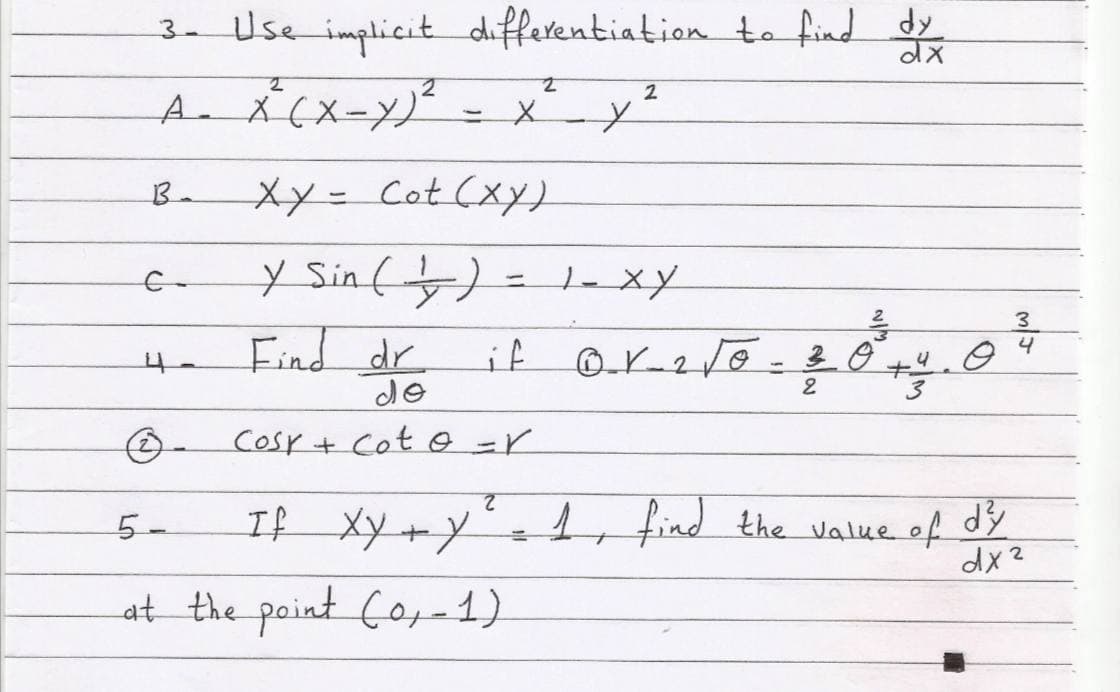 3- Use implicit differentiation to find dy/dx
A- x²(x-y)² = x² - y²
B- xy = cot(xy)
C- y sin(1/y) = 1- xy
4- Find dr/dθ if ①- r-2√θ = 3/2 θ^(2/3) + 4/3 . θ^(3/4)
②- cosr + cot θ = r
5- If xy + y² = 1, find the value of d²y/dx²
at the point (0,-1)